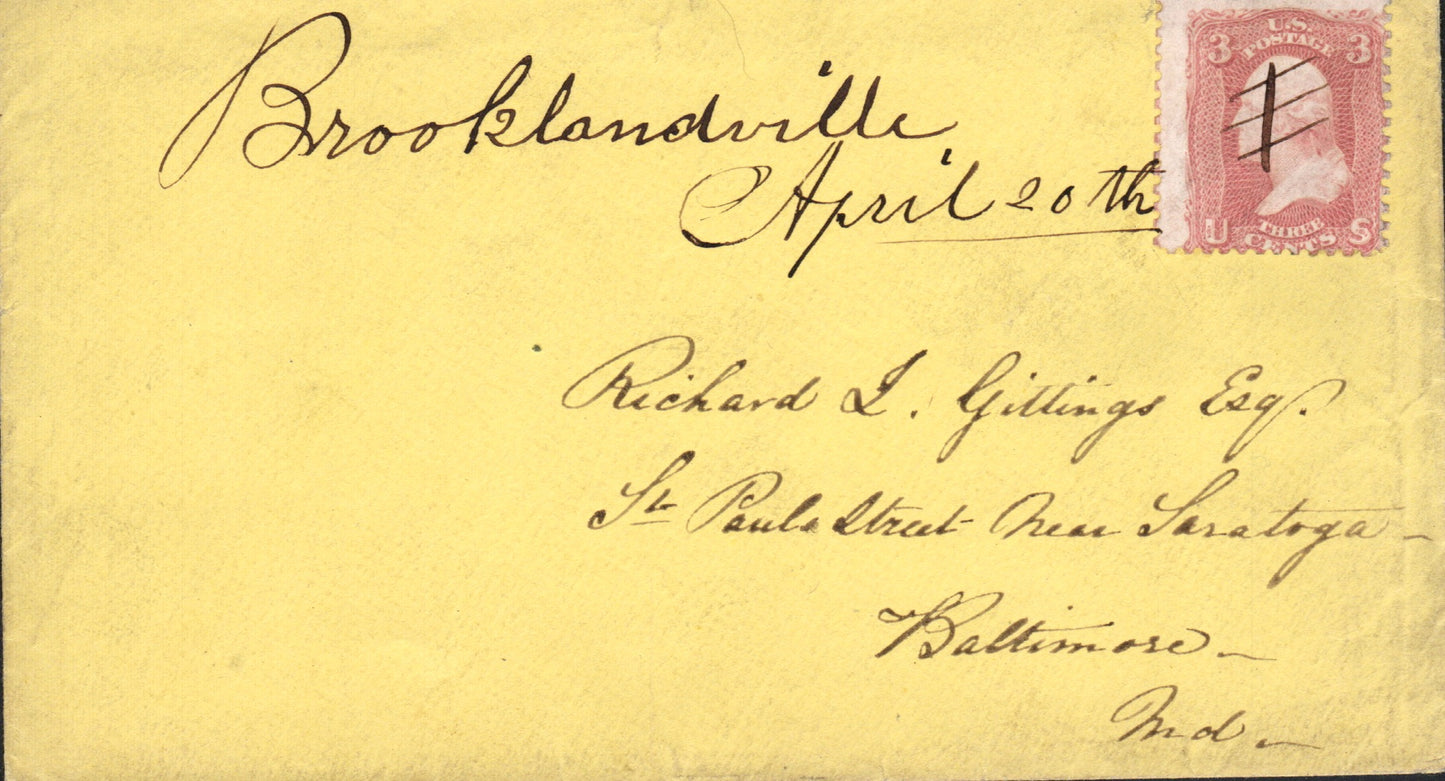 Brooklandville
April 20th
3 U.S. 3
POSTAGE
U THREE S
CENTS
Richard J. Gittings Esq.
St Pauls Street near Saratoga -
Baltimore -
Md -